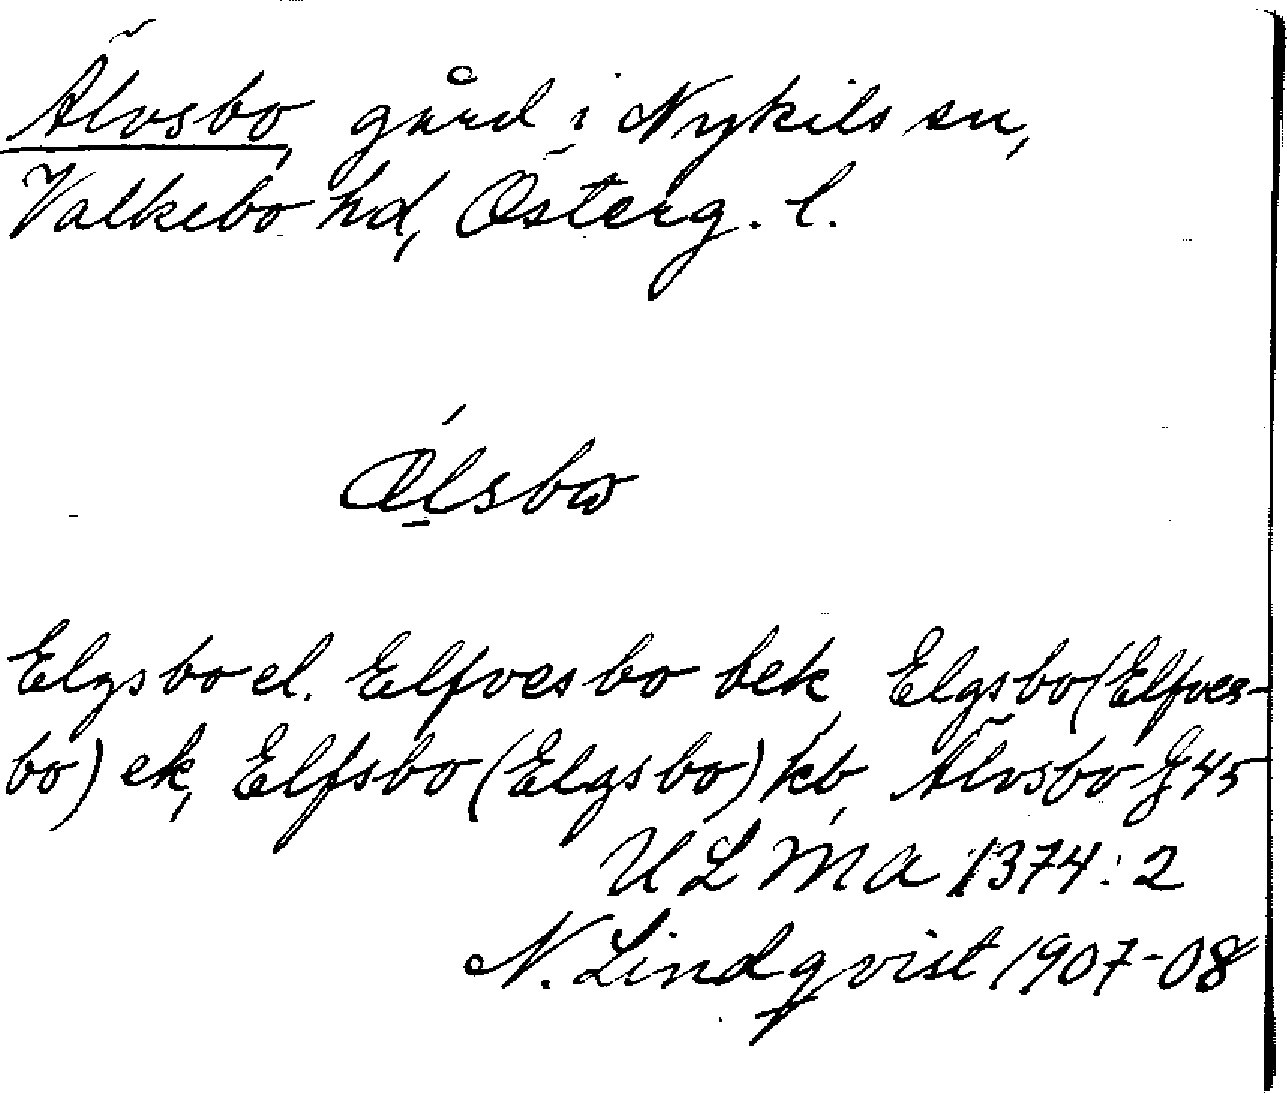 Älvsbo, gård i Nykils sn,
Valkebo hd, Österg. l.
Ǽlsbω
Elgsbo el. Elfvesbo bek, Elgsbo (Elfves-
bo) ek, Elfsbo (Elgsbo) kb, Älvsbo J 45
ULMA 1374:2
N. Lindqvist 1907-08